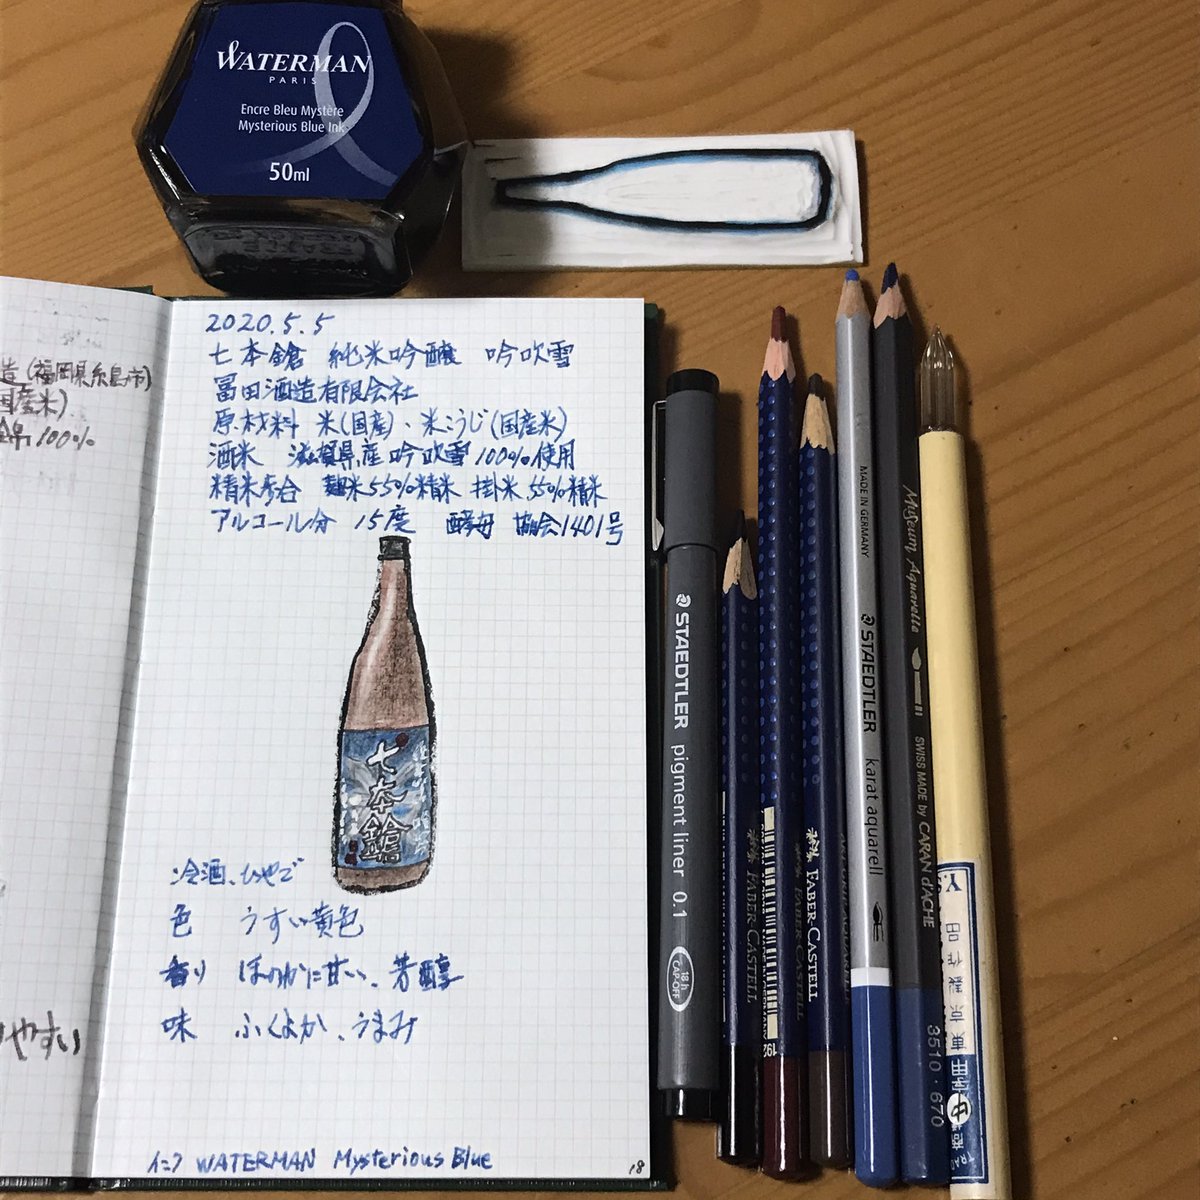 WATERMAN
PARIS
Encre Bleu Mystère
Mysterious Blue Ink
50ml
造(福岡県糸島市)
国産米)
錦100%
やすい
2020.5.5
七本鎗 純米吟醸 吟吹雪
冨田酒造有限会社
原材料 米(国産)、米こうじ(国産米)
酒米 滋賀県産吟吹雪100%使用
精米歩合 麹米55%精米 掛米55%精米
アルコール分 15度 酵母 協会1401号
七本鎗
冷酒、ひやで
色 うすい黄色
香り ほのかに甘い、芳醇
味 ふくよか、うまみ
インク WATERMAN Mysterious Blue
18
STAEDTLER pigment liner 0.1
18h CAP-OFF
FABER-CASTELL
FABER-CASTELL
MADE IN GERMANY STAEDTLER karat aquarell
Museum Aquarelle SWISS MADE by CARAN d'ACHE 3510·670
東京製作品